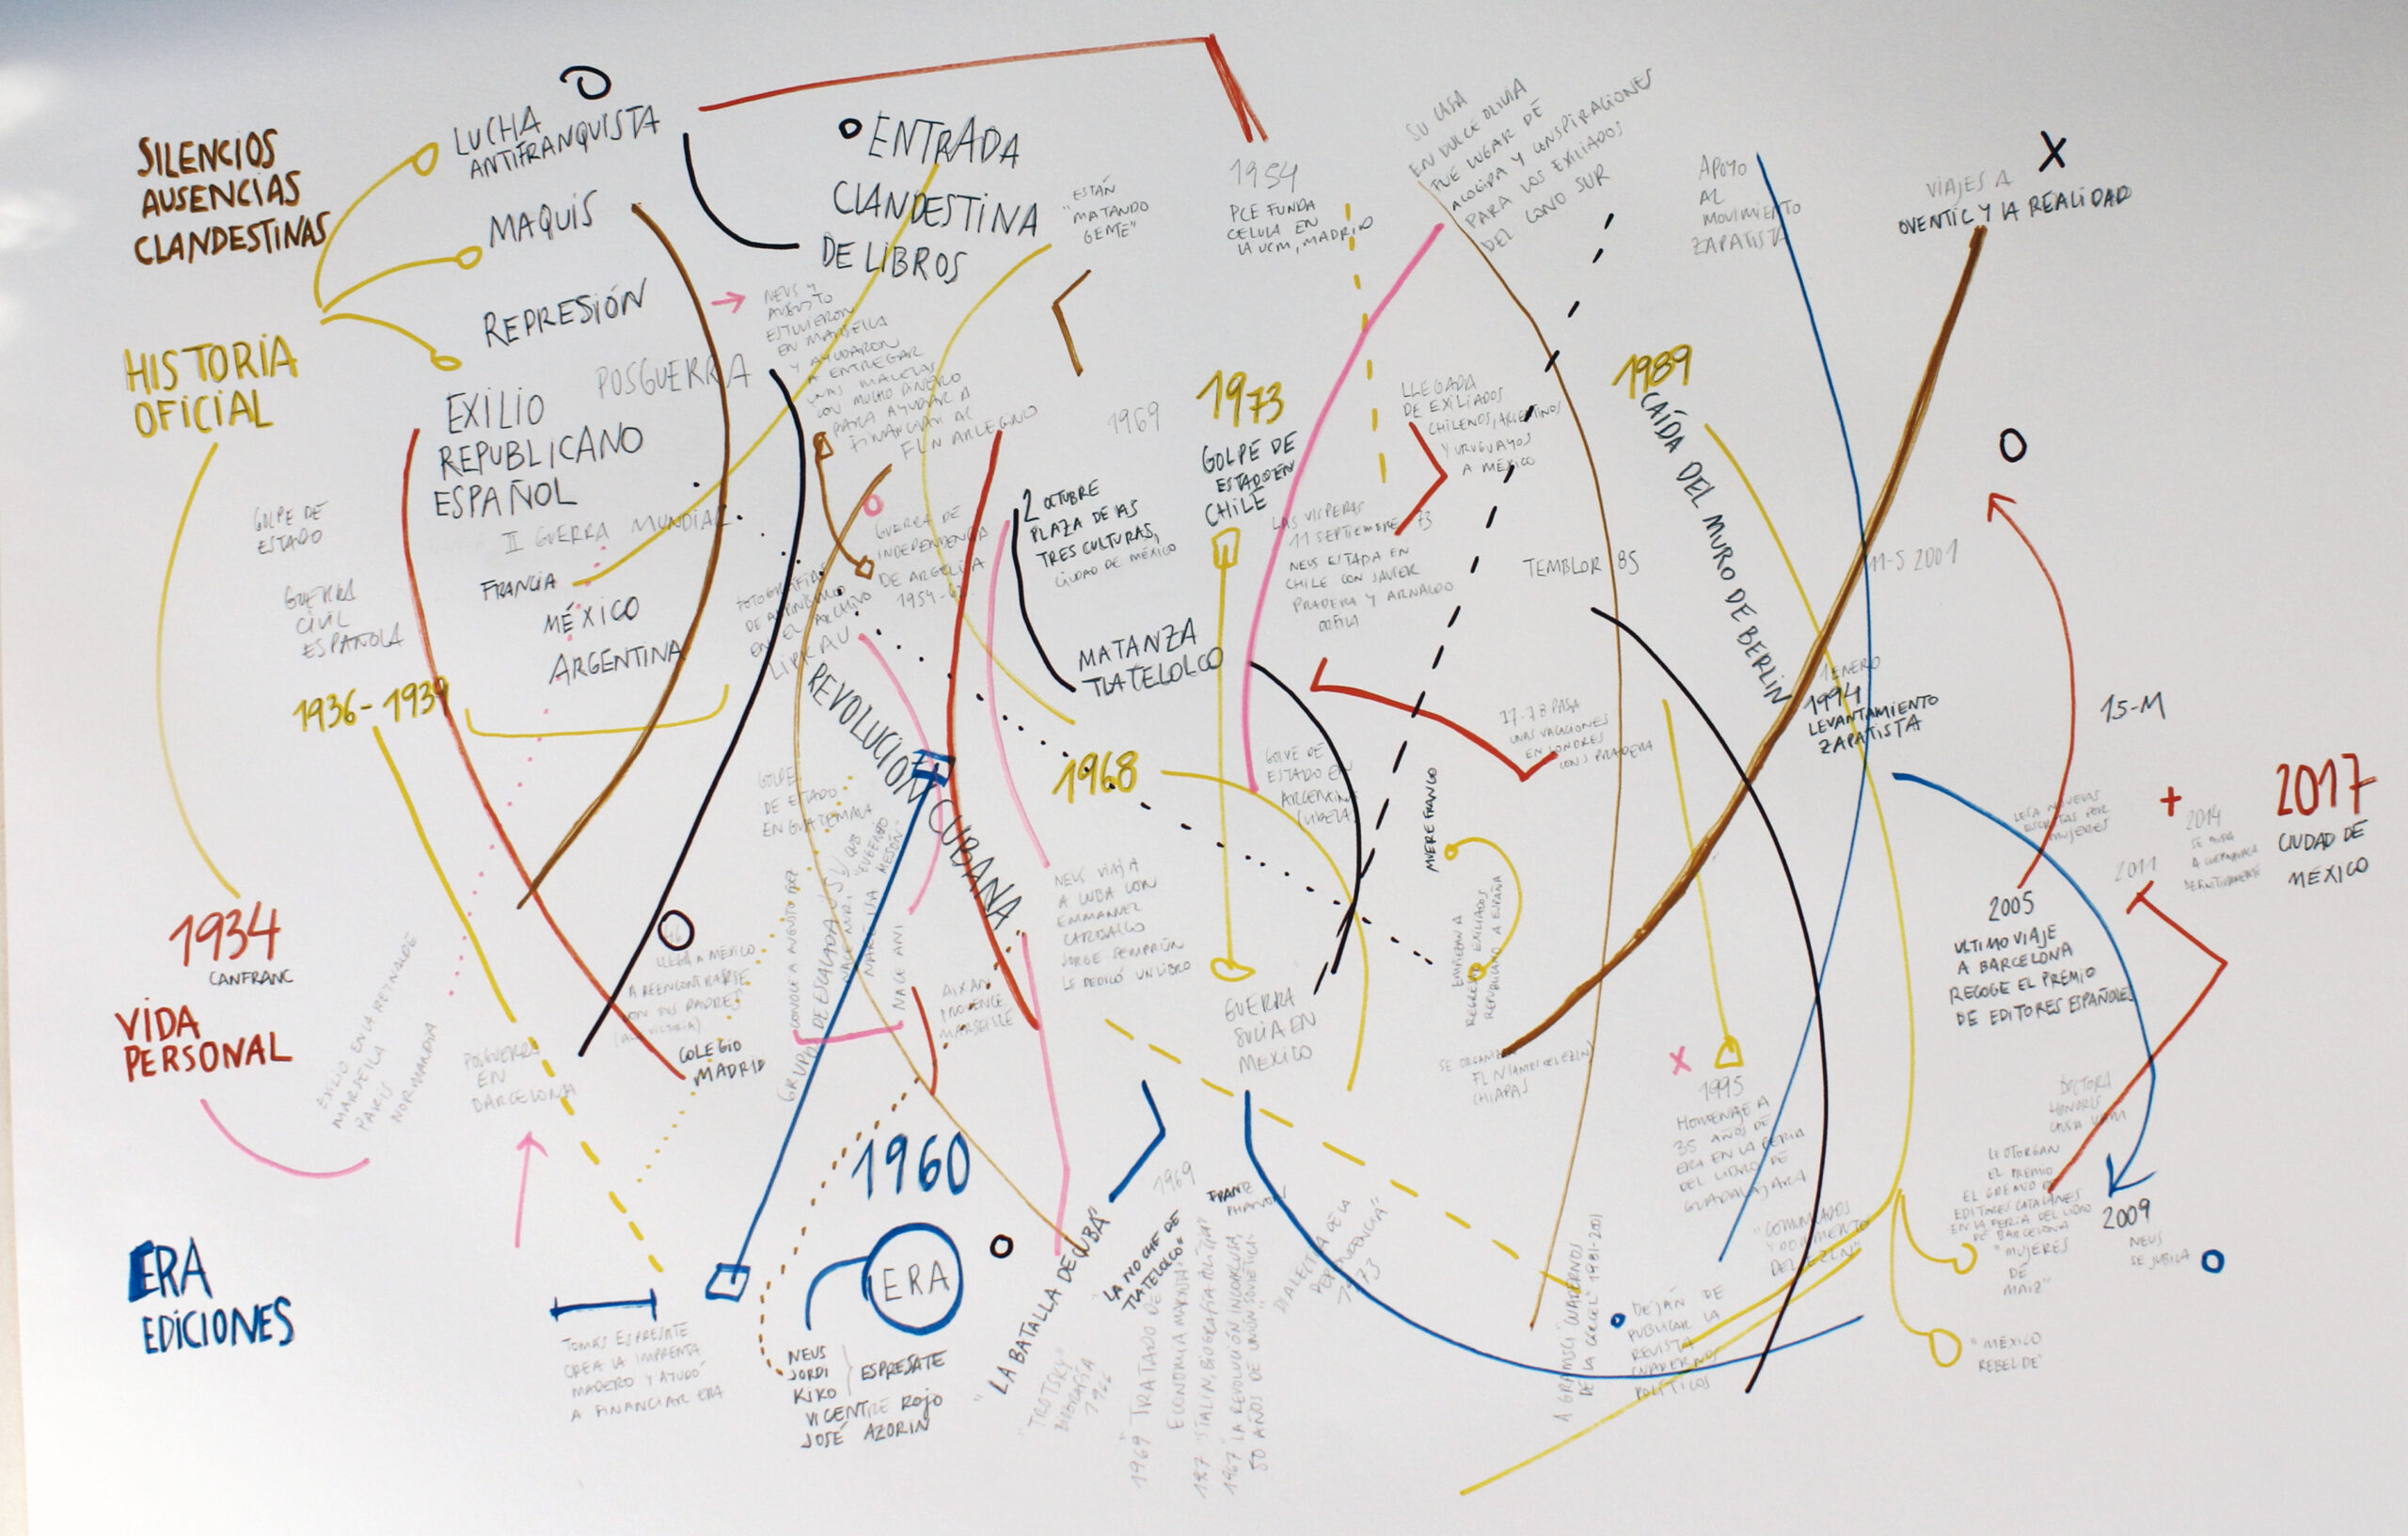 SILENCIOS
AUSENCIAS
CLANDESTINAS
HISTORIA
OFICIAL
LUCHA
ANTIFRANQUISTA
MAQUIS
REPRESIÓN
POSGUERRA
EXILIO
REPUBLICANO
ESPAÑOL
II GUERRA MUNDIAL
FRANCIA
MÉXICO
ARGENTINA
GOLPE DE
ESTADO
GUERRA
CIVIL
ESPAÑOLA
1936-1939
1934
CANFRANC
VIDA
PERSONAL
EXILIO EN LA
MARSELLA
PARÍS
NORMANDIA
POSGUERRA
EN
BARCELONA
ERA
EDICIONES
TOMÁS ESPRESATE
CREA LA IMPRENTA
MADERO Y AYUDÓ
A FINANCIAR ERA
ENTRADA
CLANDESTINA
DE LIBROS
NEUS Y
AUGUSTO
ESTUVIERON
EN MARSELLA
Y AYUDARON
A ENTREGAR
UNAS MALETAS
CON MUCHO DINERO
PARA AYUDAR A
FINANCIAR AL
FLN ARGELINO
GUERRA DE
INDEPENDENCIA
DE ARGELIA
1954-62
EN EL ARCHIVO
REVOLUCIÓN CUBANA
GOLPE
DE ESTADO
EN GUATEMALA
LLEGA A MÉXICO
A REENCONTRARSE
CON SUS PADRES
COLEGIO
MADRID
CONOCE A AUGUSTO
GRUPO DE ESCALADA
NACE ANI
AIX AN
PROVENCE
MARSEILLE
1960
ERA
NEUS
JORDI
KIKO
ESPRESATE
VICENTRE ROJO
JOSÉ AZORIN
ESTÁN
"MATANDO
GENTE"
1954
PCE FUNDA
CELULA EN
LA UCM, MADRID
1969
2 OCTUBRE
PLAZA DE LAS
TRES CULTURAS,
CIUDAD DE MÉXICO
MATANZA
TLATELOLCO
1968
NEUS VIAJA
A CUBA CON
EMMANUEL
CARBALLO
JORGE SEMPRÚN
LE DEDICÓ UN LIBRO
"LA BATALLA DE CUBA"
"TROTSKY"
BIOGRAFÍA
1966
1969
"LA NOCHE DE
TLATELOLCO"
1969 TRATADO DE
ECONOMIA MARXISTA
"STALIN, BIOGRAFÍA POLÍTICA"
1967 "LA REVOLUCIÓN INCONCLUSA,
50 AÑOS DE UNIÓN SOVIÉTICA"
FRANTZ
DIALECTICA DE LA
DEPENDENCIA"
1973
1973
GOLPE DE
ESTADO EN
CHILE
LAS VISPERAS
11 SEPTIEMBRE 73
NEUS ESTABA EN
CHILE CON JAVIER
PRADERA Y ARNALDO
ORFILA
GOLPE DE
ESTADO EN
ARGENTINA
(VIDELA)
GUERRA
SUCIA EN
MEXICO
SU CASA
EN DULCE OLIVIA
FUE LUGAR DE
ACOGIDA Y CONSPIRACIONES
PARA LOS EXILIADOS
DEL CONO SUR
LLEGADA
DE EXILIADOS
CHILENOS, ARGENTINOS
Y URUGUAYOS
A MÉXICO
TEMBLOR 85
77-78 PASA
UNAS VACACIONES
EN LONDRES
CON PRADERA
MUERE FRANCO
EMPIEZAN A
REGRESAR EXILIADOS
REPUBLICANO A ESPAÑA
SE ORGANIZA
FLN (ANTES DEL EZLN)
CHIAPAS
A GRAMSCI "CUADERNOS
DE LA CARCEL" 1981-2001
DEJAN DE
PUBLICAR LA
REVISTA
CUADERNOS
POLÍTICOS
APOYO
AL
MOVIMIENTO
ZAPATISTA
VIAJES A
OVENTIC Y LA REALIDAD
1989
CAÍDA DEL MURO DE BERLIN
11-S 2001
1 ENERO
1994
LEVANTAMIENTO
ZAPATISTA
1995
HOMENAJE A
35 AÑOS DE
ERA EN LA FERIA
DEL LIBRO DE
GUADALAJARA
"COMUNICADOS
Y DOCUMENTO
DEL EZLN"
15-M
ESCRITAS POR
MUJERES
2011
2014
2017
CIUDAD DE
MÉXICO
2005
ULTIMO VIAJE
A BARCELONA
RECOGE EL PREMIO
DE EDITORES ESPAÑOLES
DOCTORA
HONORIS
CAUSA UAM
LE OTORGAN
EL PREMIO
EL GREMIO DE
EDITORES CATALANES
EN LA FERIA DEL LIBRO
DE BARCELONA
"MUJERES
DE
MAIZ"
2009
NEUS
SE JUBILA
"MÉXICO
REBELDE"